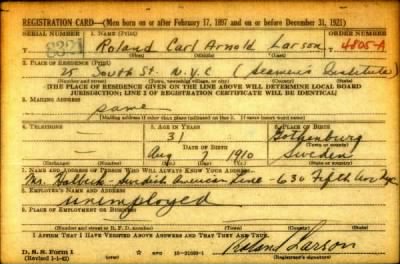 REGISTRATION CARD—(Men born on or after February 17, 1897 and on or before December 31, 1921)
SERIAL NUMBER 1. NAME (Print) ORDER NUMBER
8321 Roland Carl Arnold Larson 4805-A
2. PLACE OF RESIDENCE (Print)
25 South St. N.Y.C (Seamen's Institute)
(Number and street) (Town, township, village, or city) (County) (State)
[THE PLACE OF RESIDENCE GIVEN ON THE LINE ABOVE WILL DETERMINE LOCAL BOARD
JURISDICTION; LINE 2 OF REGISTRATION CERTIFICATE WILL BE IDENTICAL]
3. MAILING ADDRESS
same
[Mailing address if other than place indicated on line 2. If same insert word same]
4. TELEPHONE 5. AGE IN YEARS 6. PLACE OF BIRTH
— 31 Gothenburg
DATE OF BIRTH (Town or county)
— Aug 7 1910 Sweden
(Mo.) (Day) (Yr.) (State or country)
7. NAME AND ADDRESS OF PERSON WHO WILL ALWAYS KNOW YOUR ADDRESS
Mr. Swedish American Line - 630 Fifth Ave
8. EMPLOYER'S NAME AND ADDRESS
unemployed
9. PLACE OF EMPLOYMENT OR BUSINESS
(Number and street or R. F. D. number) (Town) (County) (State)
I AFFIRM THAT I HAVE VERIFIED ABOVE ANSWERS AND THAT THEY ARE TRUE.
D. S. S. Form 1
(Revised 1-1-42) GPO Roland Larson